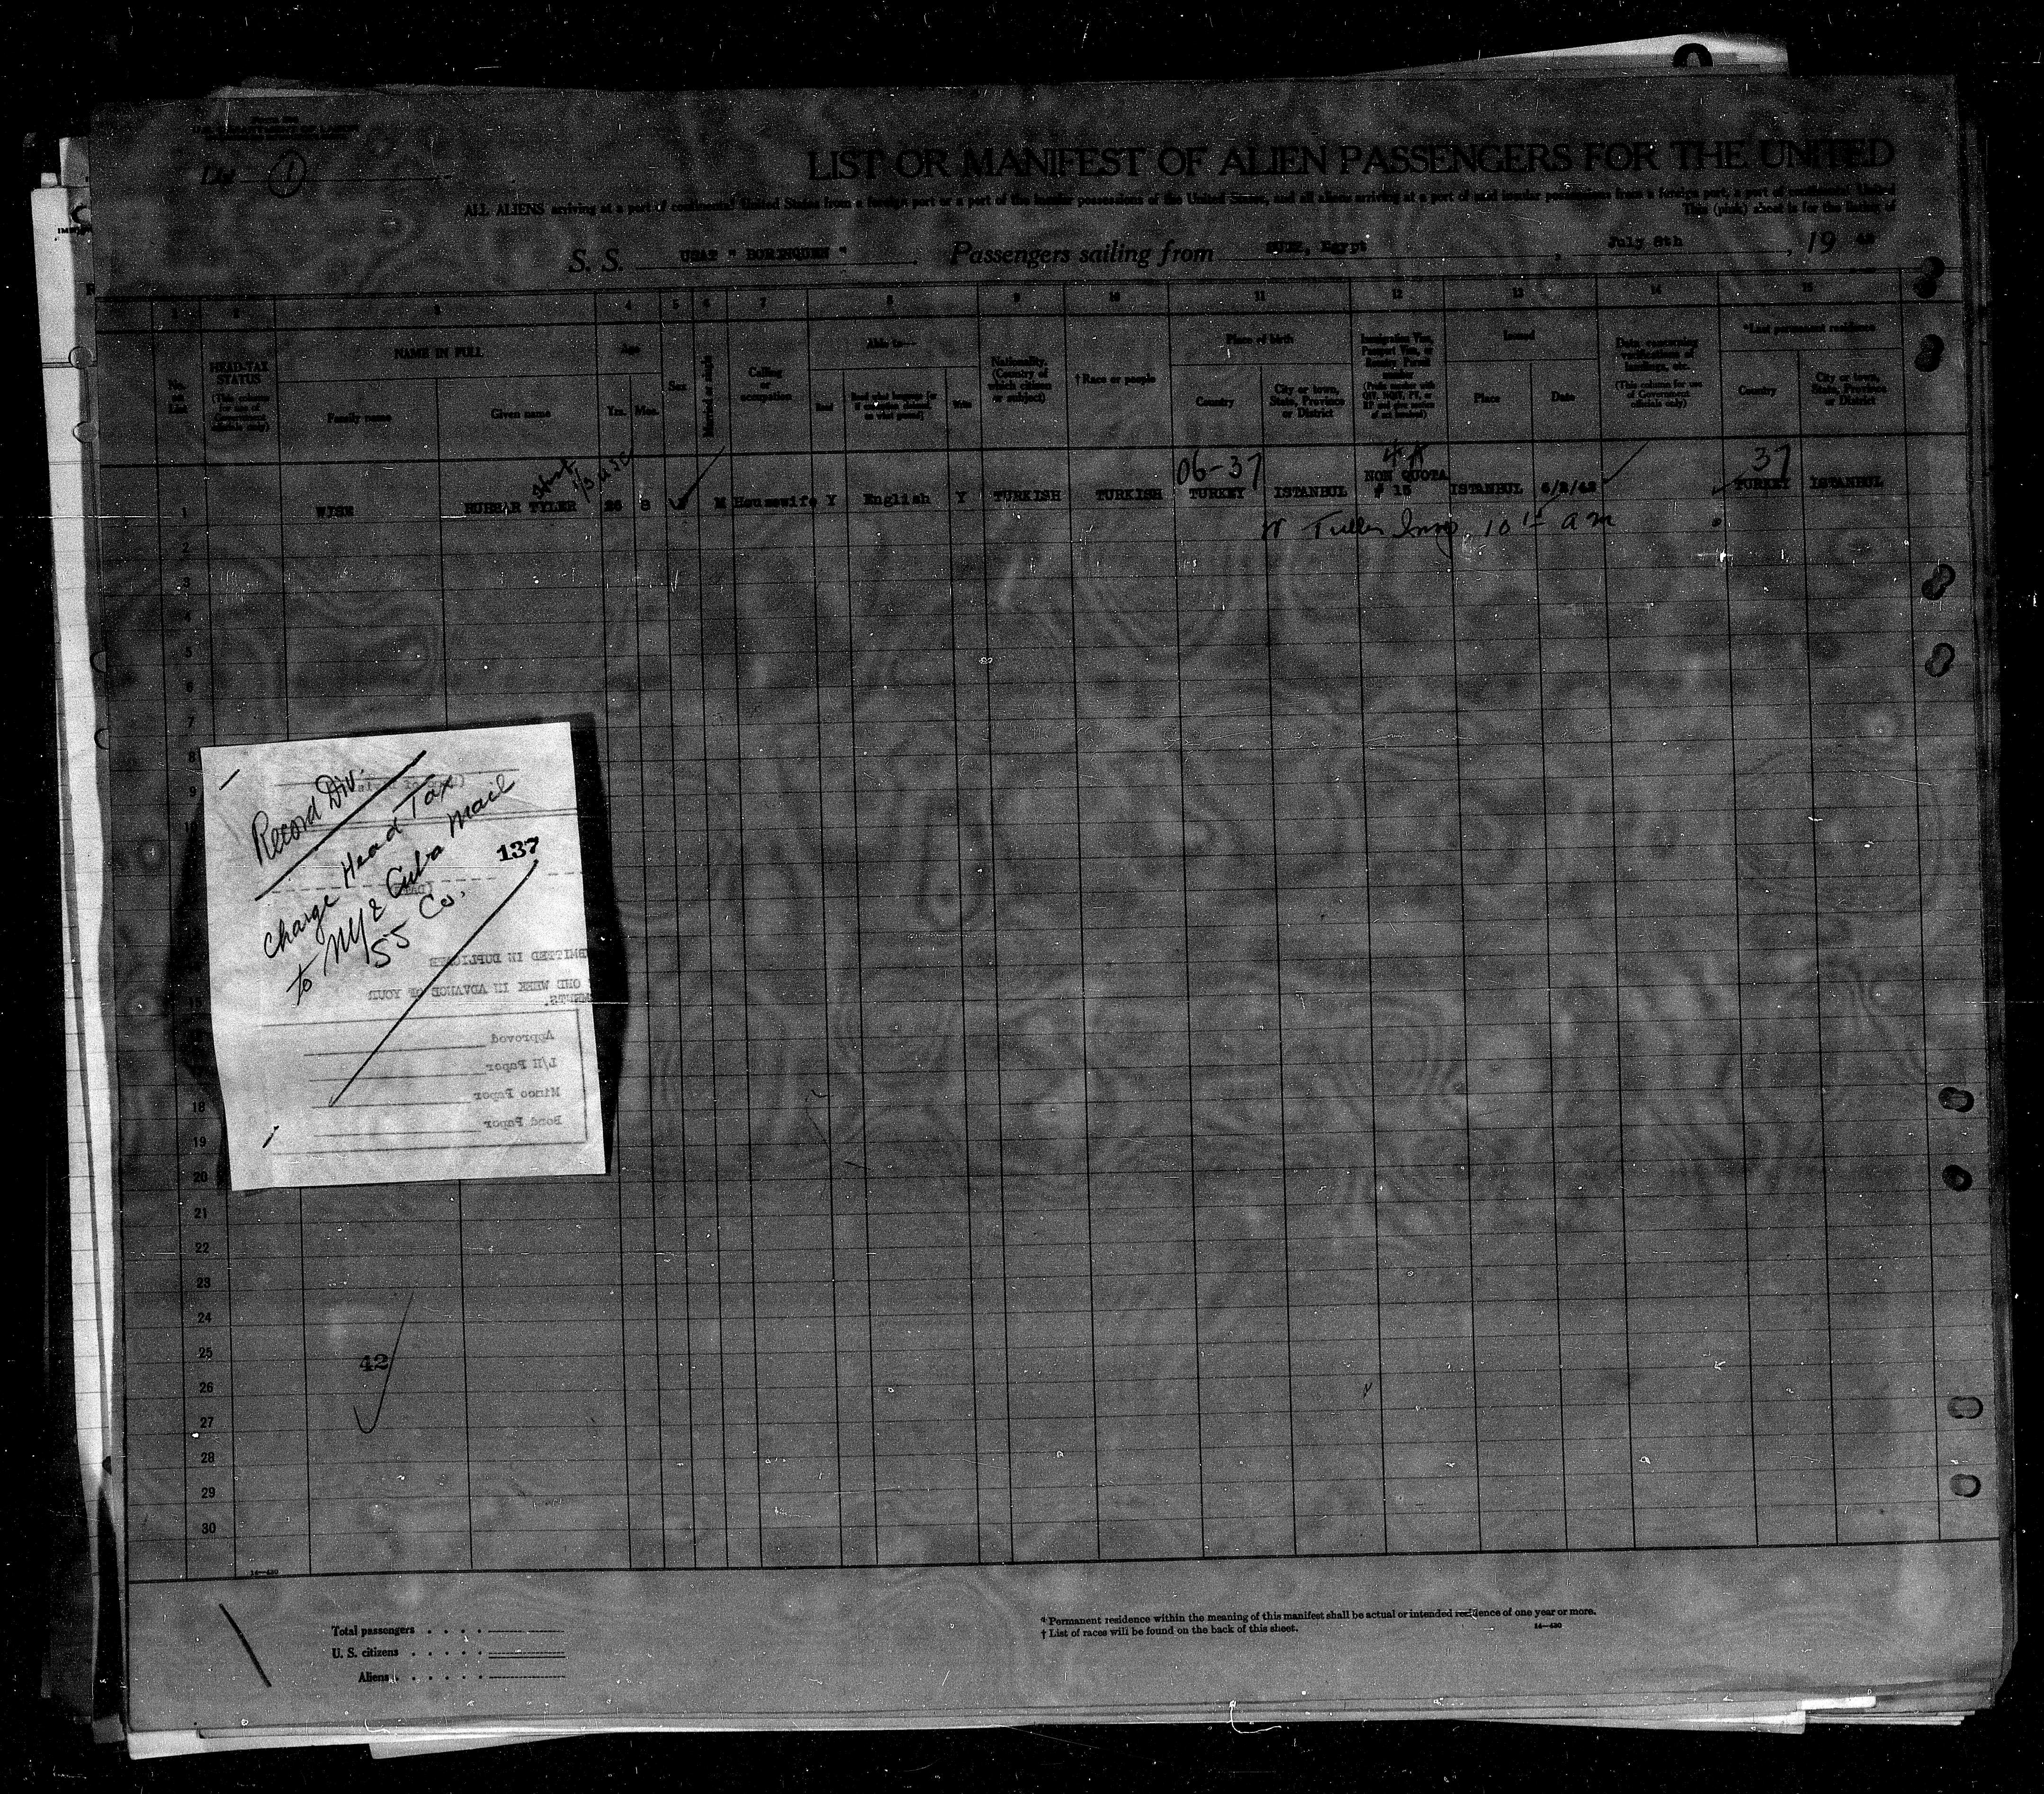 List ①
LIST OR MANIFEST OF ALIEN PASSENGERS FOR THE UNITED
ALL ALIENS arriving at a port of continental United States from a foreign port or a port of the insular possessions of the United States, and all aliens arriving at a port of said insular possessions from a foreign port, a port of continental United
This (pink) sheet is for the listing of
S. S. USAT " BORINQUEN " Passengers sailing from SUEZ, Egypt, July 8th, 19 42
1 2 3 4 5 6 7 8 9 10 11 12 13 14 15
No. on List
HEAD-TAX STATUS (This column for use of Government officials only)
NAME IN FULL
Family name
Given name
Age
Yrs. Mos.
Sex
Married or single
Calling or occupation
Able to—
Read
Read what language
Write
Nationality. (Country of which citizen or subject)
† Race or people
Place of birth
Country
City or town, State, Province or District
Immigration Visa, Passport Visa, or Reentry Permit number
Issued
Place
Date
Data concerning verifications of landings, etc. (This column for use of Government officials only)
*Last permanent residence
Country
City or town, State, Province or District
06-37
37
NON QUOTA
1 WISE TYLER 26 8 M Housewife Y English Y TURKISH TURKISH TURKEY ISTANBUL # 15 ISTANBUL TURKEY ISTANBUL
2
3
4
5
6
7
8
9
10
15
18
19
20
21
22
23
24
25
26
27
28
29
30
Record Div.
Charge Head Tax
to NY & Cuba Mail
SS Co.
137
MITTED IN DUPLICATE
ONE WEEK IN ADVANCE OF YOUR
Approved
L/H Paper
Mimeo Paper
Bond Paper
42
16—430
Total passengers
U. S. citizens
Aliens
* Permanent residence within the meaning of this manifest shall be actual or intended residence of one year or more.
† List of races will be found on the back of this sheet.
16—430